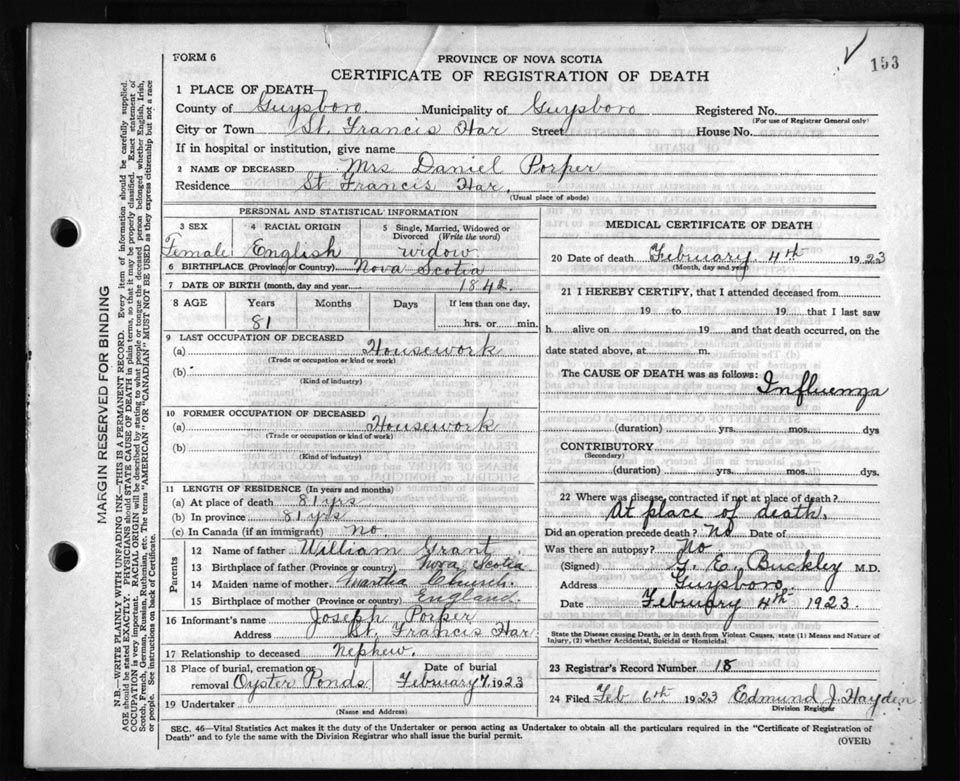 FORM 6
PROVINCE OF NOVA SCOTIA
CERTIFICATE OF REGISTRATION OF DEATH
153
1 PLACE OF DEATH
County of Guysboro. Municipality of Guysboro Registered No.
(For use of Registrar General only)
City or Town St. Francis Har Street House No.
If in hospital or institution, give name
2 NAME OF DECEASED Mrs Daniel Porper
Residence St Francis Har.
(Usual place of abode)
PERSONAL AND STATISTICAL INFORMATION
3 SEX 4 RACIAL ORIGIN 5 Single, Married, Widowed or Divorced (Write the word)
Female English widow
6 BIRTHPLACE (Province or Country) Nova Scotia
7 DATE OF BIRTH (month, day and year) 1842.
8 AGE Years Months Days If less than one day,
81 hrs. or min.
9 LAST OCCUPATION OF DECEASED
(a) Housework
(Trade or occupation or kind of work)
(b)
(Kind of industry)
10 FORMER OCCUPATION OF DECEASED
(a) Housework
(Trade or occupation or kind of work)
(b)
(Kind of industry)
11 LENGTH OF RESIDENCE (In years and months)
(a) At place of death 81 yrs
(b) In province 81 yrs
(c) In Canada (if an immigrant) no.
Parents
12 Name of father William Grant
13 Birthplace of father (Province or country) Nova Scotia
14 Maiden name of mother Martha Church.
15 Birthplace of mother (Province or country) England.
16 Informant's name Joseph Porper
Address St. Francis Har
17 Relationship to deceased Nephew.
18 Place of burial, cremation or removal Oyster Ponds Date of burial February 7, 1923
19 Undertaker
(Name and Address)
MEDICAL CERTIFICATE OF DEATH
20 Date of death February 4th 1923
(Month, day and year)
21 I HEREBY CERTIFY, that I attended deceased from
19 to 19 that I last saw
h alive on 19 and that death occurred, on the
date stated above, at m.
The CAUSE OF DEATH was as follows: Influenza
(duration) yrs. mos. dys
CONTRIBUTORY
(Secondary)
(duration) yrs. mos. dys.
22 Where was disease contracted if not at place of death?
At place of death.
Did an operation precede death? No Date of
Was there an autopsy? No
(Signed) G. E. Buckley M.D.
Address Guysboro
Date February 4th 1923.
State the Disease causing Death, or in death from Violent Causes, state (1) Means and Nature of Injury, (2) whether Accidental, Suicidal or Homicidal.
23 Registrar's Record Number 18
24 Filed Feb 6th 1923 Edmund J. Hayden.
Division Registrar
SEC. 46—Vital Statistics Act makes it the duty of the Undertaker or person acting as Undertaker to obtain all the particulars required in the "Certificate of Registration of
Death" and to fyle the same with the Division Registrar who shall issue the burial permit.
(OVER)
MARGIN RESERVED FOR BINDING
N.B.—WRITE PLAINLY WITH UNFADING INK—THIS IS A PERMANENT RECORD. Every item of information should be carefully supplied.
AGE should be stated EXACTLY. PHYSICIANS should STATE CAUSE OF DEATH in plain terms, so that it may be properly classified. Exact statement of
OCCUPATION is very important. RACIAL ORIGIN will be described by stating to what people or tongue the deceased person belonged whether English, Irish,
Scotch, French, German, Russian, Ruthenian, etc. The terms "AMERICAN" OR "CANADIAN" MUST NOT BE USED as they express citizenship but not a race
or people. See instructions on back of Certificate.